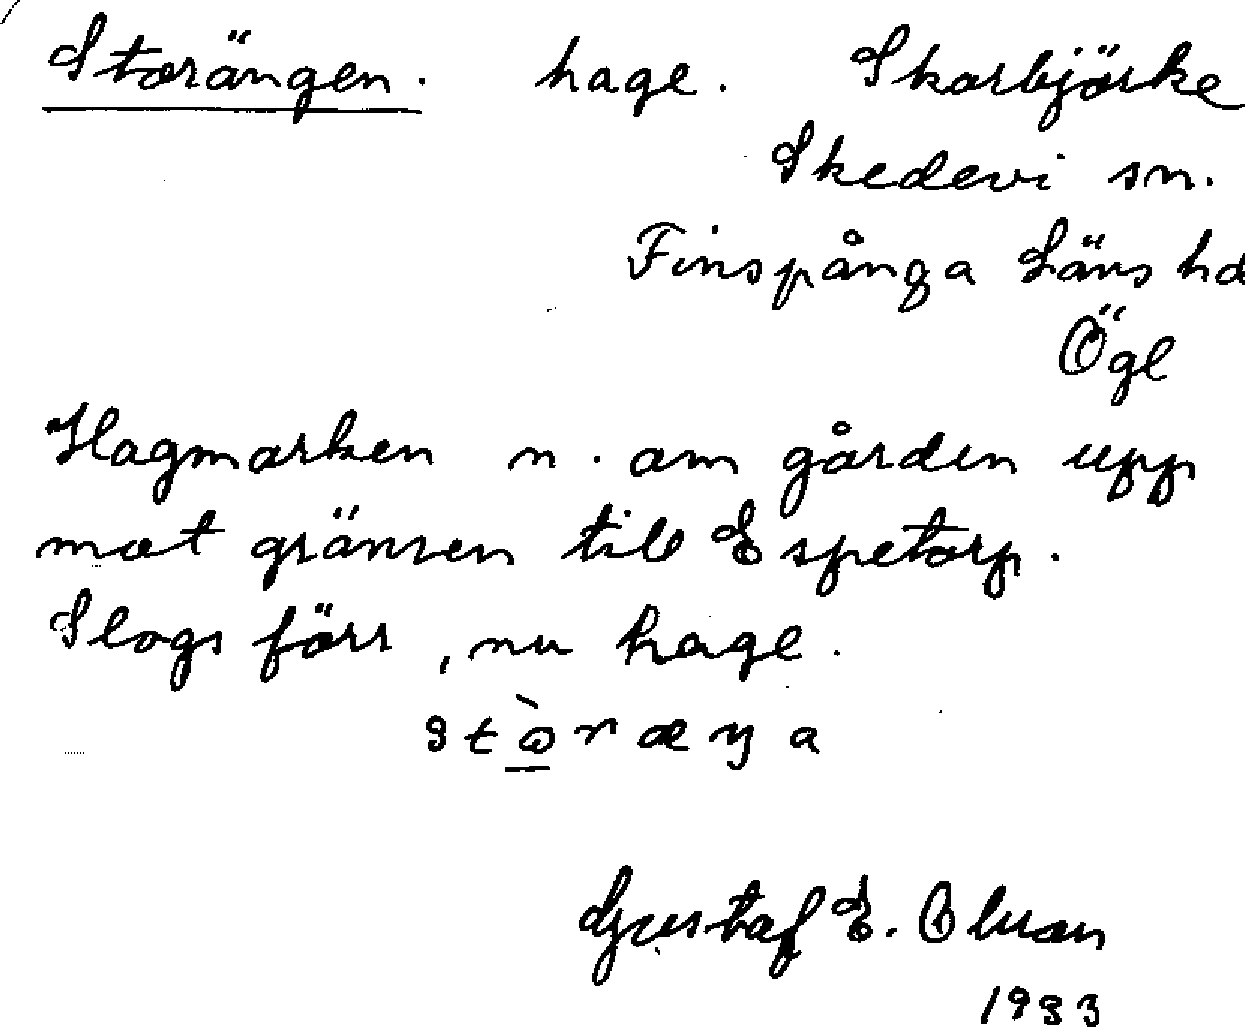 Storängen. hage. Skarbjörke
Skedevi sn.
Finspånga Läns hd
Ögl
Hagmarken n. om gården upp
mot gränsen till Espetorp.
Slogs förr, nu hage.
Gustaf E. Olsson
1933